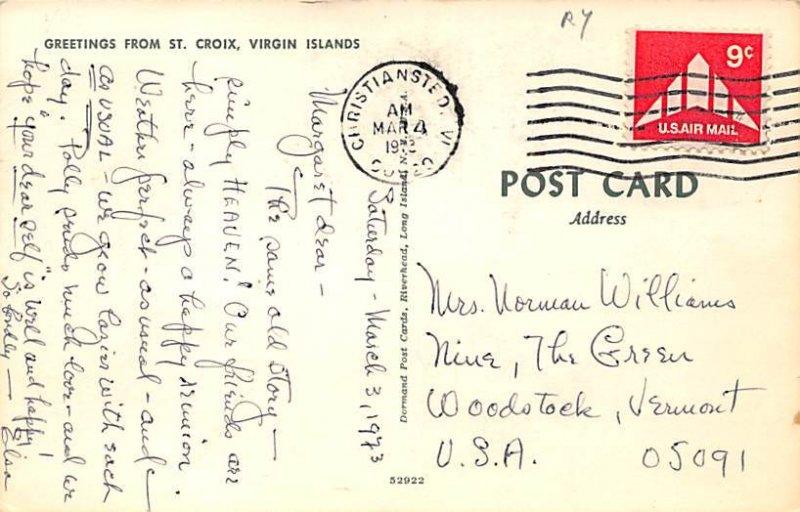 GREETINGS FROM ST. CROIX, VIRGIN ISLANDS
Saturday - March 3, 1973
Margaret dear -
The same old story -
simply HEAVEN! Our friends are
here - always a happy reunion.
Weather perfect - as usual - and
as USUAL - we grow lazier with each
day. Polly sends much love - and we
hope "your dear self" is well and happy!
So fondly -
Elsa
Dormand Post Cards, Riverhead, Long Island, N.Y.
52922
R7
CHRISTIANSTED, VI
AM
MAR 4
1973
9¢
U.S. AIR MAIL
POST CARD
Address
Mrs. Norman Williams
Nine, The Green
Woodstock, Vermont
U.S.A. 05091